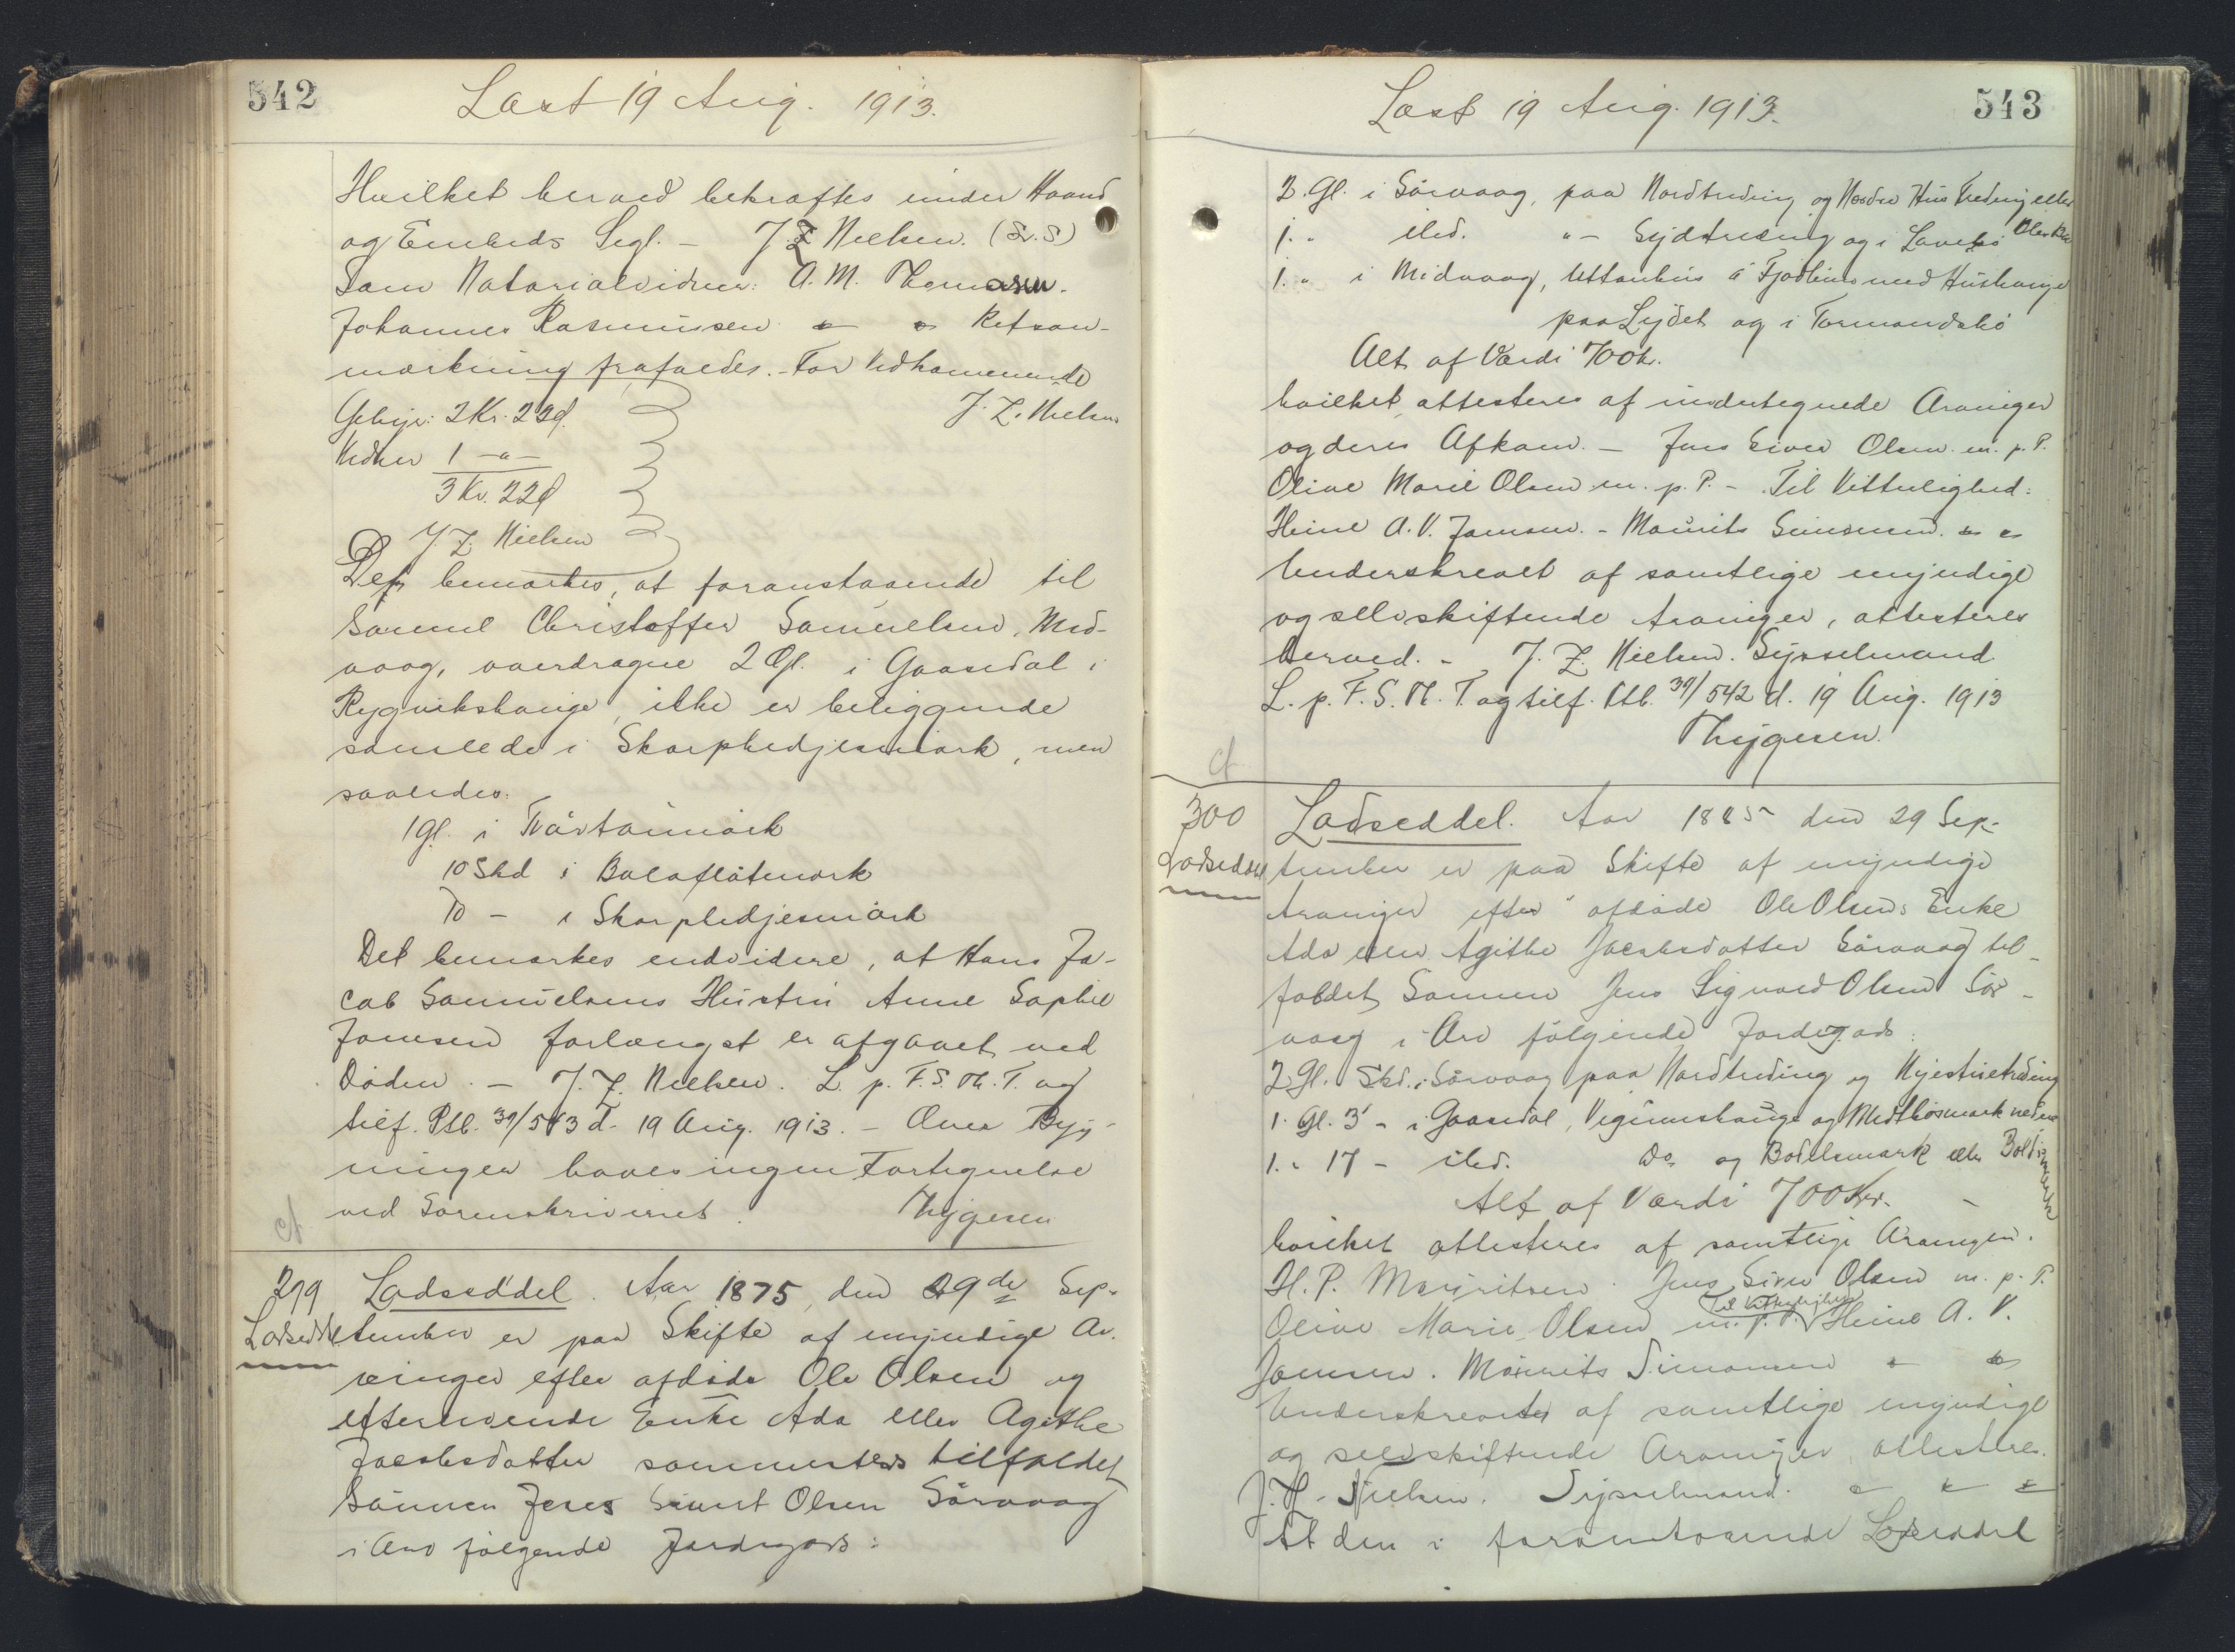 542
Læst 19 Aug. 1913.
Hvilket herved bekræftes under Haand
og Embeds Segl. - J. Z. Nielsen. (L.S)
Som Notarialvidner: A. M. Thomasen.
Johannes Rasmussen Retsan-
mærkning frafaldes. - For Vedkommende
Gebyr: 2 Kr. 22 Ø. J. Z. Nielsen
Vidner 1 -"-
3 Kr. 22 Ø
J. Z. Nielsen
Det bemærkes, at foranstaaende til
Samuel Christoffer Samuelsen, Mid-
vaag, overdragne 2 Gl. i Gaasedal i
Rygvikshauge, ikke er beliggende
samlede i Skarphedjesmørk, men
saaledes:
1 gl. i Tvørtanmørk
10 Skd i Balaflötemørk
10 - i Skarphedjesmørk
Det bemærkes endvidere, at Hans Ja-
cob Samuelsens Hustru Anne Sophie
Joensen forlængst er afgaaet ved
Døden. - J. Z. Nielsen. L. p. F. S. M. T. og
tilf. Ptb. 39/543 d. 19 Aug. 1913. - Over Byg-
ninger haves ingen Fortegnelse
ved Sorenskriveriet. Thygesen
ct
299 Lodseddel. Aar 1875, den 29de Sep-
Lodseddel tember er paa Skifte af myndige Ar-
vinger efter afdøde Ole Olsen og
efterlevende Enke Ada eller Agithe
Jacobsdatter sammesteds tilfaldet
Sønnen Jens Sivert Olsen Sörvaag
i Arv følgende Jordegods:
Læst 19 Aug. 1913. 543
2. Gl. i Sörvaag, paa Nordtreding og Nordre Hus Treding eller
1. " ibd. " - Sydtreding og i Lavebö
1. " i Midvaag, Uttanhus á Fjødlinum med Hushauge
paa Lydet og i Tormandsbö
Alt af Værdi 700 kr.
hvilket attesteres af undertegnede Arvinger
og deres Afkom. - Jens Siver Olsen m. p. P.
Olive Marie Olsen m. p. P. - Til Vitterlighed:
Heine A. V. Joensen. - Mourits Simonsen.
Underskrevet af samtlige myndige
og selvskiftende Arvinger, attesteres
herved. - J. Z. Nielsen. Sysselmand.
L. p. F. S. M. T. og tilf. Ptb. 39/542 d. 19 Aug. 1913
Thygesen.
ct
300 Lodseddel. Aar 1885 den 29 Sep-
Lodseddel tember er paa Skifte af myndige
Arvinger efter afdøde Ole Olsens Enke
Ada eller Agithe Jacobsdatter Sörvaag til-
faldet Sønnen Jens Sigvard Olsen Sör-
vaag i Arv følgende Jordegods:
2 Gl. Skd. i Sörvaag paa Nordtreding og Nyestuetreding
1. Gl. 3 - i Gaasedal, Vegumshauge og Midtbösmark nedre
1. " 17 - ibd. Do og Bodelsmark eller Boldismark
Alt af Værdi 700 Kr. -
hvilket attesteres af samtlige Arvinger.
H. P. Mouritsen. Jens Siver Olsen m. p. P.
Til Vitterlighed
Olive Marie Olsen m. p. P. Heine A. V.
Joensen. Mourits Simonsen
Underskrevet af samtlige myndige
og selvskiftende Arvinger, attesteres.
J. H. Nielsen. Sysselmand.
At den i foranstaaende Lodseddel